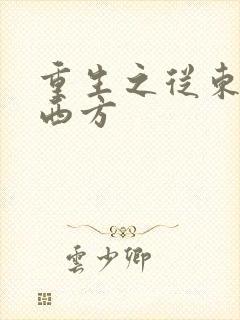 重生之從東
西方
雲少卿